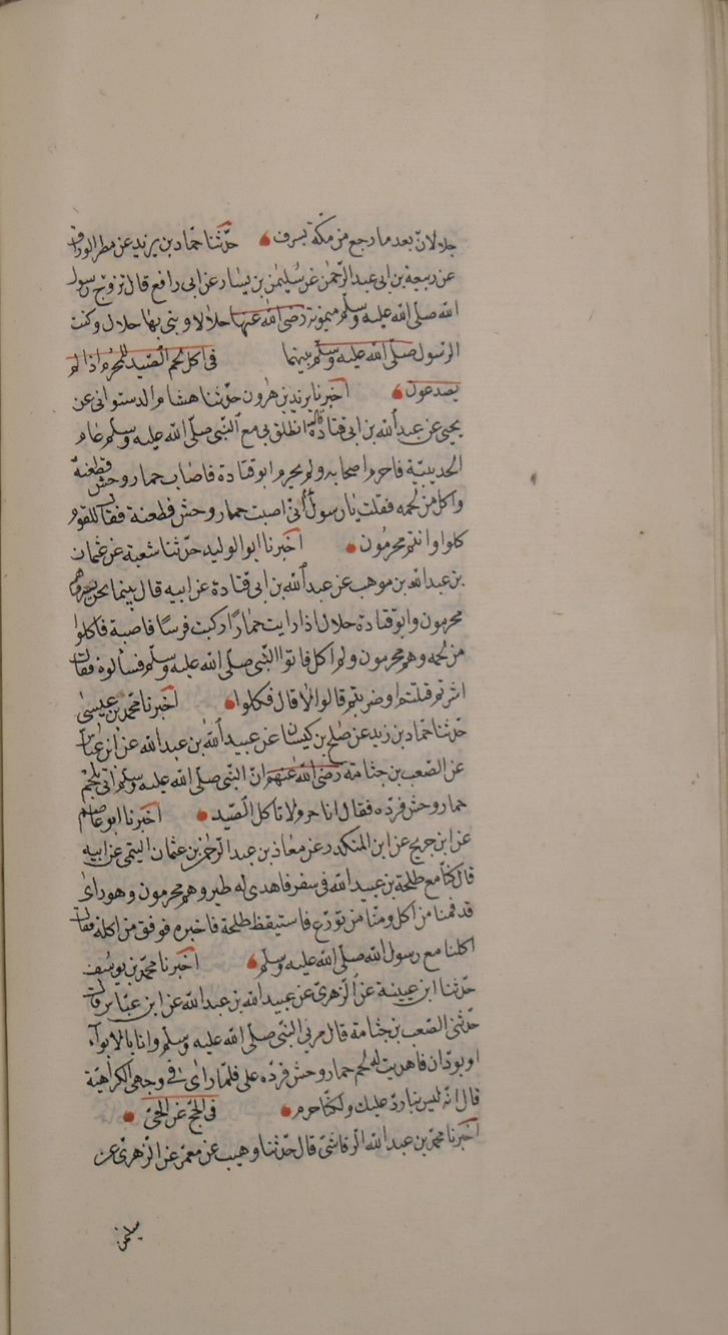 حلالان بعد ما رجع من مكة بسرف حدثنا حماد بن يزيد عن مطر الوراق
عن ربيعة بن ابى عبد الرحمن عن سليمن بن يسار عن ابى رافع قال تزوج رسول
الله صلى الله عليه وسلم ميمونة رضى الله عنها حلالا وبنى بها حلال وكنت
الرسول صلى الله عليه وسلم بينهما فى اكل لحم الصيد للمحرم اذا لم
يصد هو اخبرنا يزيد بن هرون حدثنا هشام الدستوانى عن
يحيى عن عبد الله بن ابى قتادة قال انطلق بى مع النبى صلى الله عليه وسلم عام
الحديبية فاحرم اصحابه ولم يحرم ابو قتادة فاصاب حمار وحش فطعنه
واكل من لحمه فقلت يا رسول الله انى اصبت حمار وحش فطعنة فقال للقوم
كلوا وانتم محرمون اخبرنا ابو الوليد حدثنا شعبة عن عثمان
بن عبد الله بن موهب عن عبد الله بن ابى قتادة عن ابيه قال بينما نحن نسير وهم
محرمون وابو قتادة حلال اذا رايت حمارًا فركبت فرسًا فاصبة فاكلوا
من لحمه وهم محرمون ولم اكل فاتوا النبى صلى الله عليه وسلم فسألوه فقال
اشرتم قتلتم او ضربتم قالوا لا قال فكلوا اخبرنا محمد بن عيسى
حدثنا حماد بن زيد عن صلح بن كيسان عن عبيد الله بن عبد الله عن ابن عباس
عن الصعب بن جثامة رضى الله عنهم ان النبى صلى الله عليه وسلم اتى بلحم
حمار وحش فرده فقال انا حرم لا نأكل الصيد اخبرنا ابو عاصم
عن ابن جريج عن ابن المنكدر عن معاذ بن عبد الرحمن بن عثمان التيمى عن ابيه
قال كنا مع طلحة بن عبيد الله فى سفر فاهدى له طير وهم محرمون وهو راقد
فمنا من اكل ومنا من تورع فاستيقظ طلحة فاخبره فوفق من اكله فقال
اكلنا مع رسول الله صلى الله عليه وسلم اخبرنا محمد بن يوسف
حدثنا ابن عيينة عن الزهرى عن عبيد الله بن عبد الله عن ابن عباس قال
حدثنى الصعب بن جثامة قال مر بى النبى صلى الله عليه وسلم وانا بالابوآء
او بودان فاهديت له لحم حمار وحش فرده على فلما راى فى وجهى الكراهية
قال انه ليس بنا رد عليك ولكنا حرم فى الحج عن الحى
اخبرنا محمد بن عبد الله الرقاشى قال حدثنا وهيب عن معمر عن الزهرى عن
سليمن